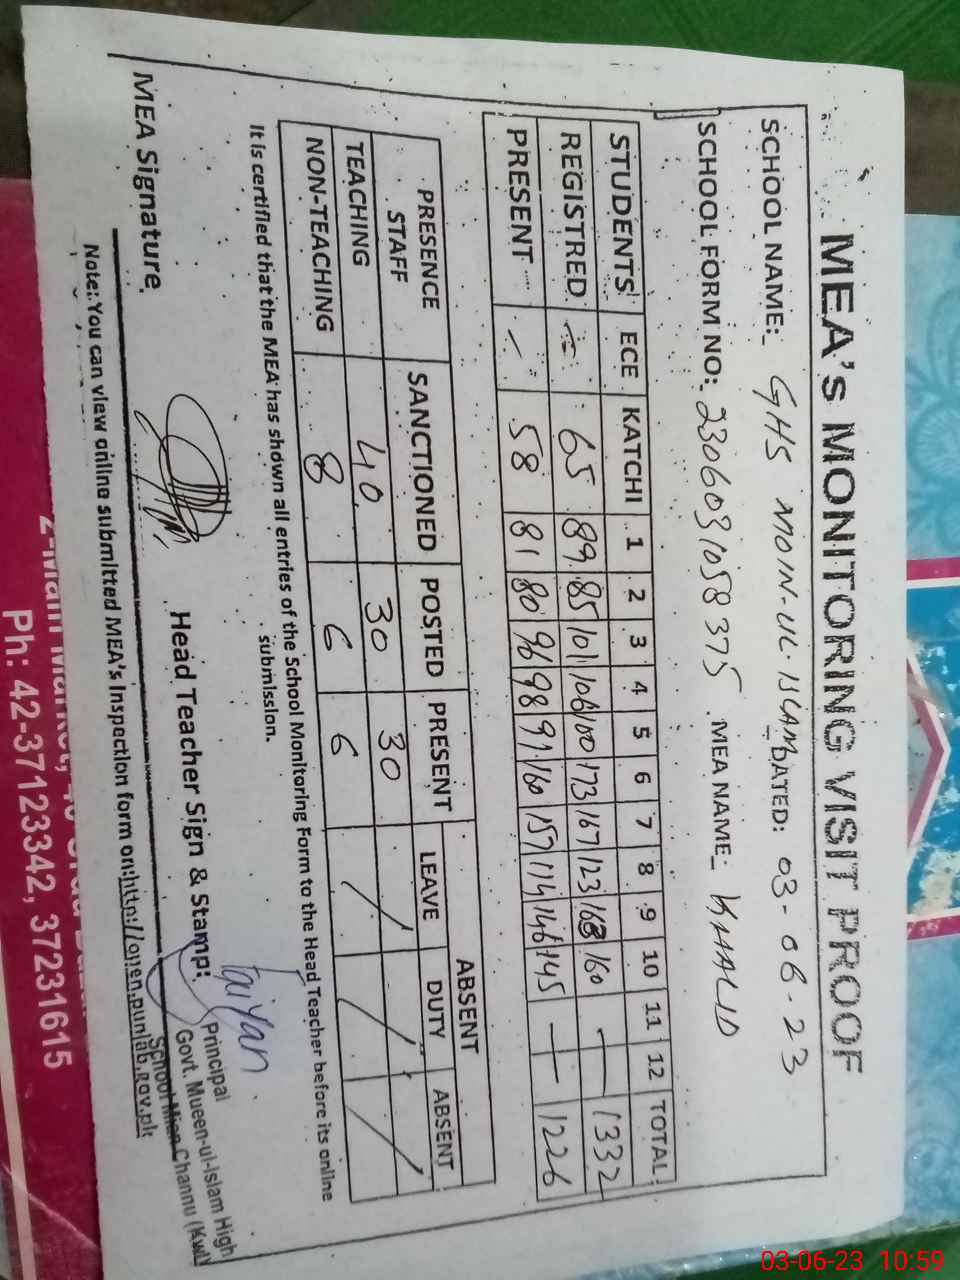 MEA's MONITORING VISIT PROOF
SCHOOL NAME: GHS MOIN-UL-ISLAM DATED: 03-06-23
SCHOOL FORM NO: 2306031058375 MEA NAME KHALID
STUDENTS ECE KATCHI 1 2 3 4 5 6 7 8 9 10 11 12 TOTAL
REGISTRED - 65 89 85 101 106 100 173 167 123 163 160 - - 1332
PRESENT - 58 81 80 96 98 91 160 157 114 146 145 - - 1226
PRESENCE STAFF SANCTIONED POSTED PRESENT ABSENT
LEAVE DUTY ABSENT
TEACHING 40 30 30 / / /
NON-TEACHING 8 6 6
It is certified that the MEA has shown all entries of the School Monitoring Form to the Head Teacher before its online
submission.
MEA Signature Head Teacher Sign & Stamp:
Principal
Govt. Mueen-ul-Islam High
School Mian Channu (KWL)
Note: You can view online submitted MEA's Inspection form on: http://open.punjab.gov.pk
Ph: 42-37123342, 37231615
03-06-23 10:59